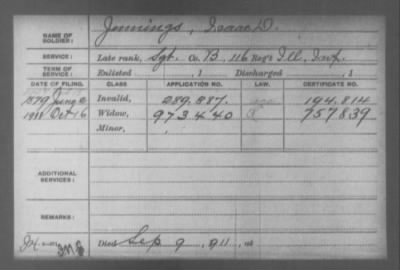 NAME OF SOLDIER: Jennings, Isaac D.
SERVICE: Late rank, Sgt. Co. B, 116 Reg't Ill. Inf.
TERM OF SERVICE: Enlisted , 1 Discharged , 1
DATE OF FILING. CLASS. APPLICATION NO. LAW. CERTIFICATE NO.
1879 June Invalid, 289.887. 194.814
1911 Oct 16 Widow, 973440 757839
Minor,
ADDITIONAL SERVICES:
REMARKS:
Died Sep 9, 1911, at